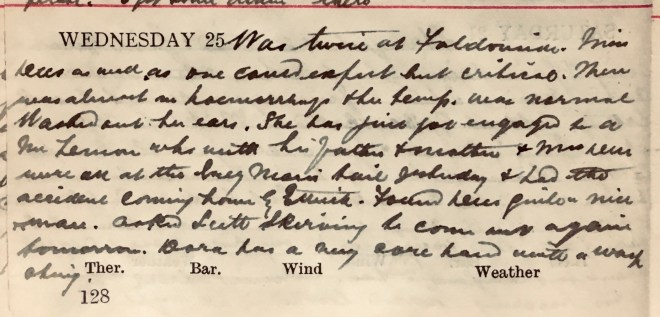 WEDNESDAY 25 Was twice at Faldonside. Miss
Dees as well as one could expect but critical. There
was almost no haemorrhage & her temp. was normal
Washed out her ears. She has just got engaged to a
Mr Lemon who with his father & mother & Miss Dees
were all at the Grey Mare's Tail yesterday & had the
accident coming home by Ettrick. Found Dees quite a nice
man. Asked Scott Skirving to come out again
tomorrow. Dora has a very sore hand with a wasp
sting.
Ther. Bar. Wind Weather
128